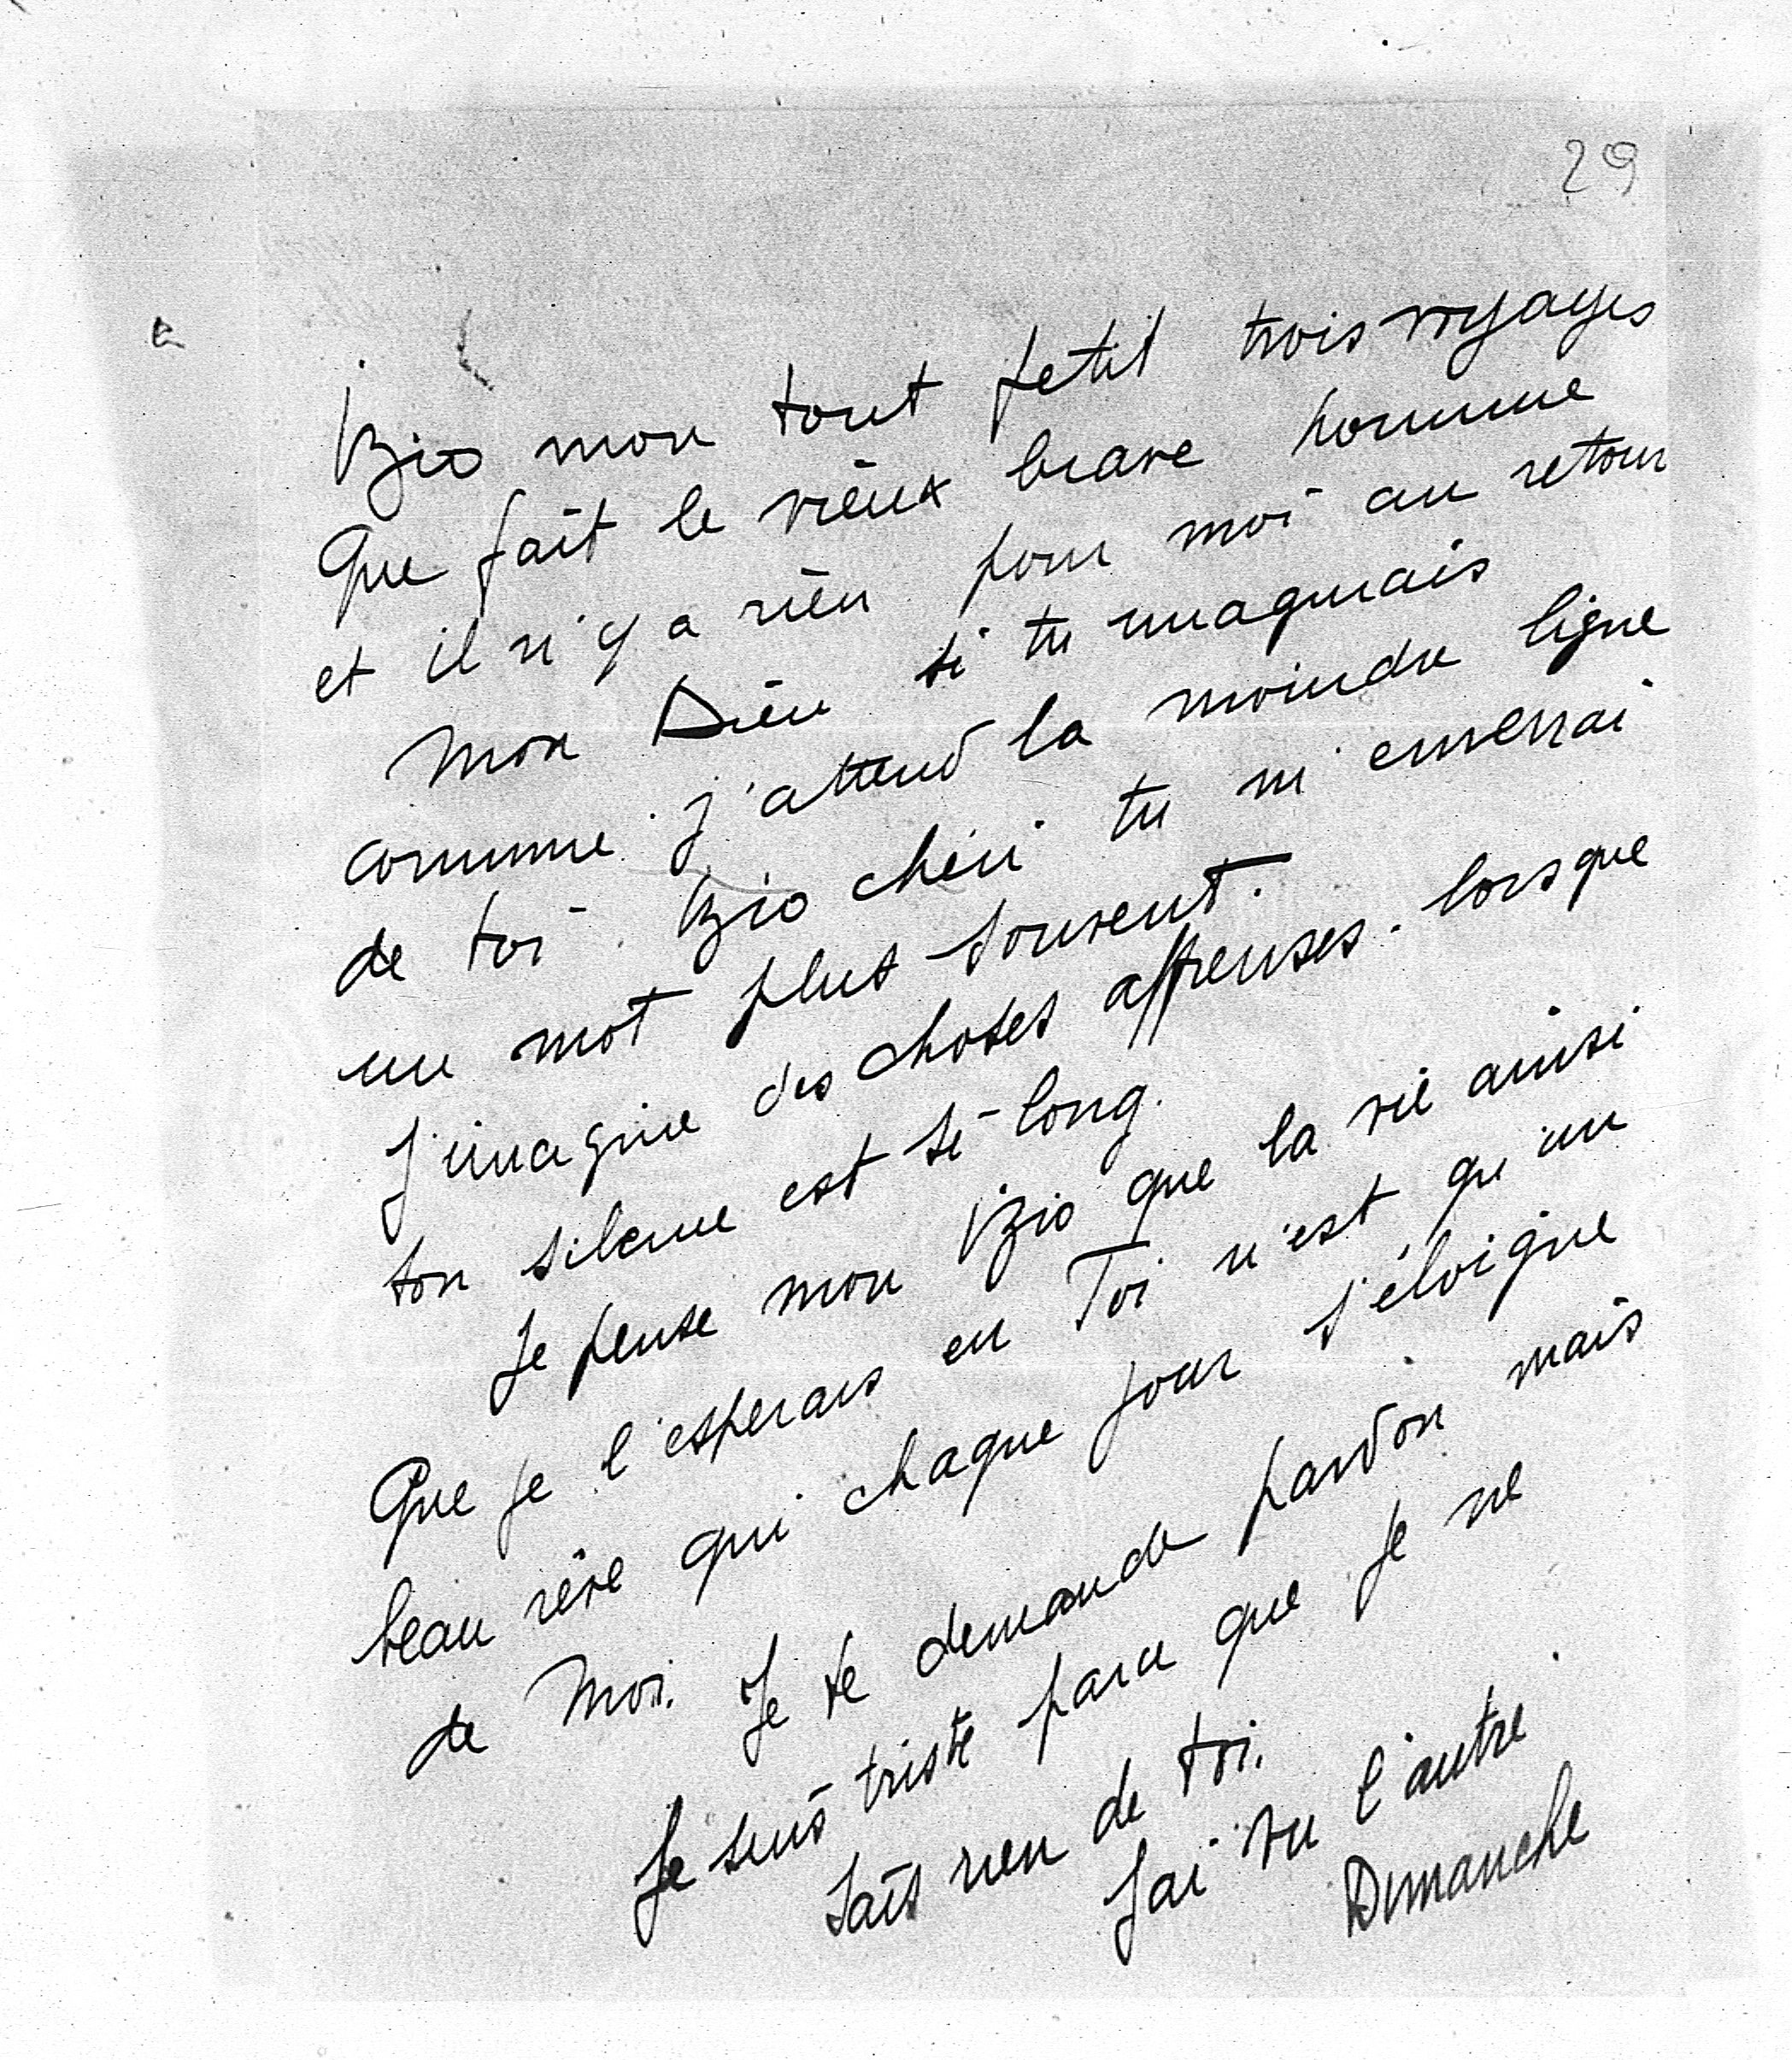 29
Bzio mon tout petit trois voyages
Que fait le vieux brave homme
et il n'y a rien pour moi au retour
Mon Dieu si tu imaginais
comme j'attend la moindre ligne
de toi. Bzio chéri tu m'enverrai
un mot plus souvent.
J'imagine des choses affreuses. lorsque
ton silence est si long.
Je pense mon Bzio que la vie ainsi
Que je l'esperais en Toi n'est qu'un
beau rêve qui chaque jour s'éloigne
de Moi. Je te demande pardon mais
Je suis triste parce que je ne
sais rien de toi.
J'ai vu l'autre
Dimanche